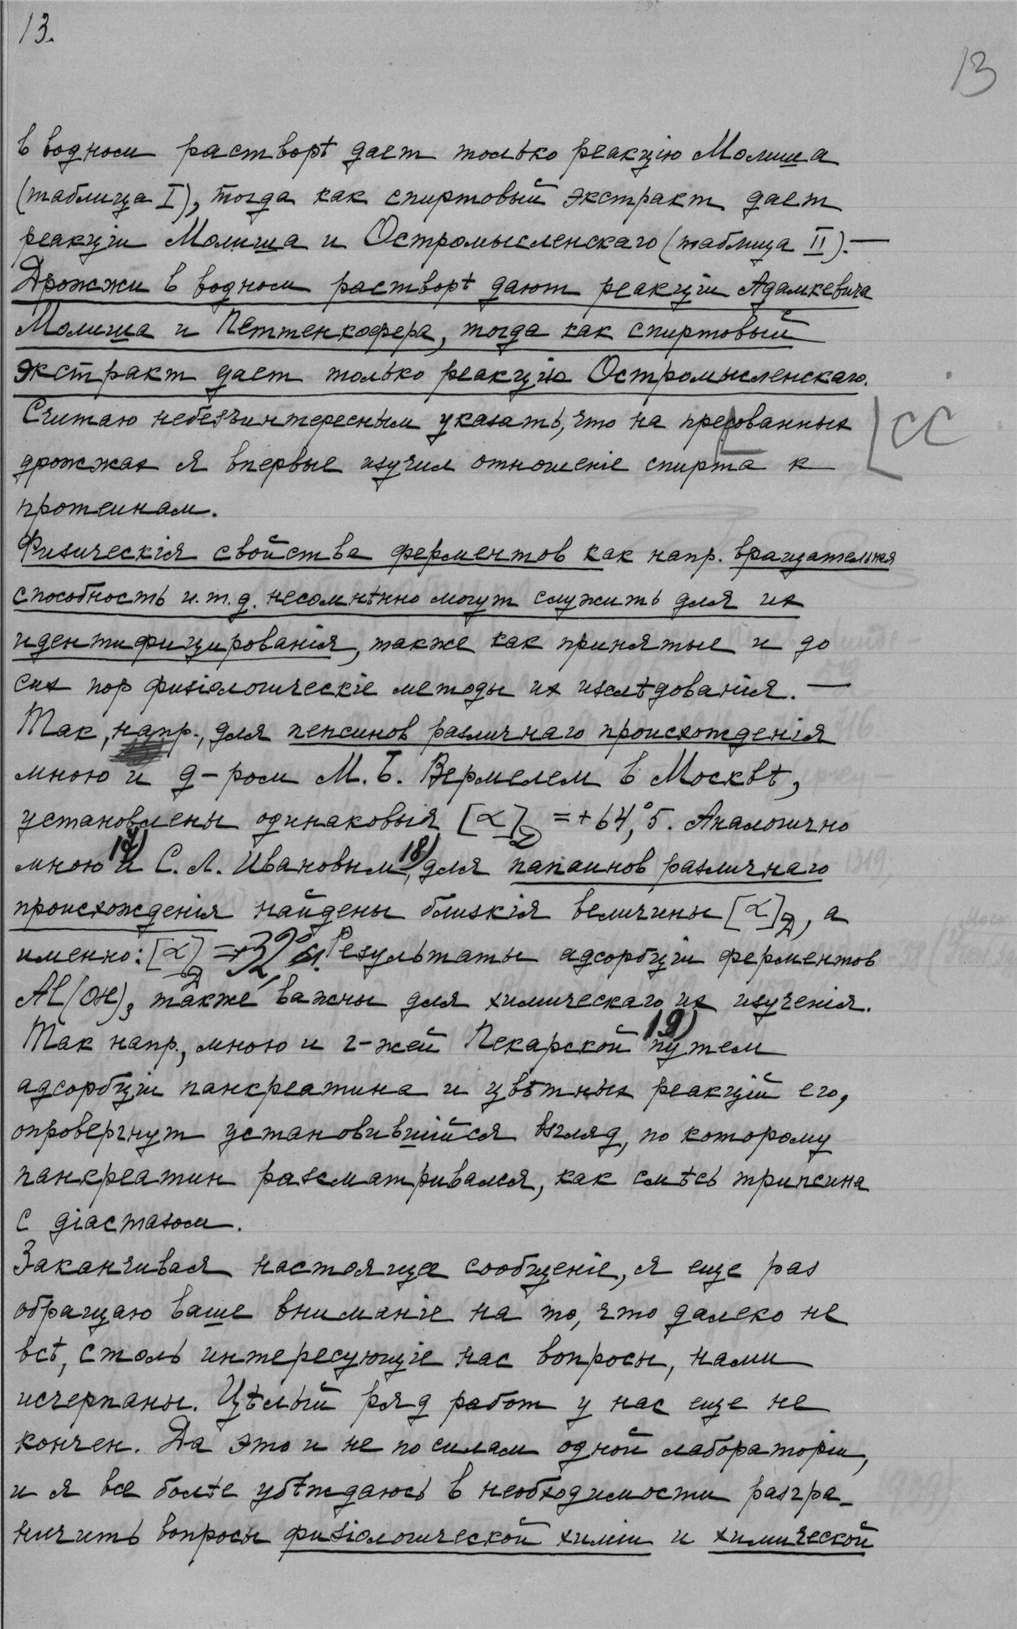 13.
13
в водном растворѣ дает только реакцію Молиша
(таблица I), тогда как спиртовый экстракт дает
реакціи Молиша и Остромысленскаго (таблица II).—
Дрожжи в водном растворѣ дают реакціи Адамкевича
Молиша и Петтенкофера, тогда как спиртовый
экстракт дает только реакцію Остромысленскаго.
Считаю небезъинтересным указать, что на пресованных
[CC
дрожжах я впервые изучил отношеніе спирта к
протеинам.
Физическія свойства ферментов как напр. вращательная
способность и.т.д. несомнѣнно могут служить для их
идентифицированія, также как принятые и до
сих пор физіологическіе методы их изслѣдованія. —
Так, напр., для пепсинов различнаго происхожденія
мною и д-ром М. Б. Вермелем в Москвѣ,
установлены одинаковыя [α]D = +64,°5. Аналогично
мною 17) и С. Л. Ивановым 18), для папаинов различнаго
происхожденія найдены близкія величины [α]D, а
именно: [α]D Результаты адсорбціи ферментов
Al(OH)3 также важны для химическаго их изученія.
Так напр., мною и г-жей Пекарской 19) путем
адсорбціи панкреатина и цвѣтных реакцій его,
опровергнут установившійся взгляд, по которому
панкреатин разсматривался, как смѣсь трипсина
с діастазом.
Заканчивая настоящее сообщеніе, я еще раз
обращаю ваше вниманіе на то, что далеко не
всѣ, столь интересующіе нас вопросы, нами
исчерпаны. Цѣлый ряд работ у нас еще не
кончен. Да это и не по силам одной лабораторіи,
и я все болѣе убѣждаюсь в необходимости разгра-
ничить вопросы физіологической химіи и химической